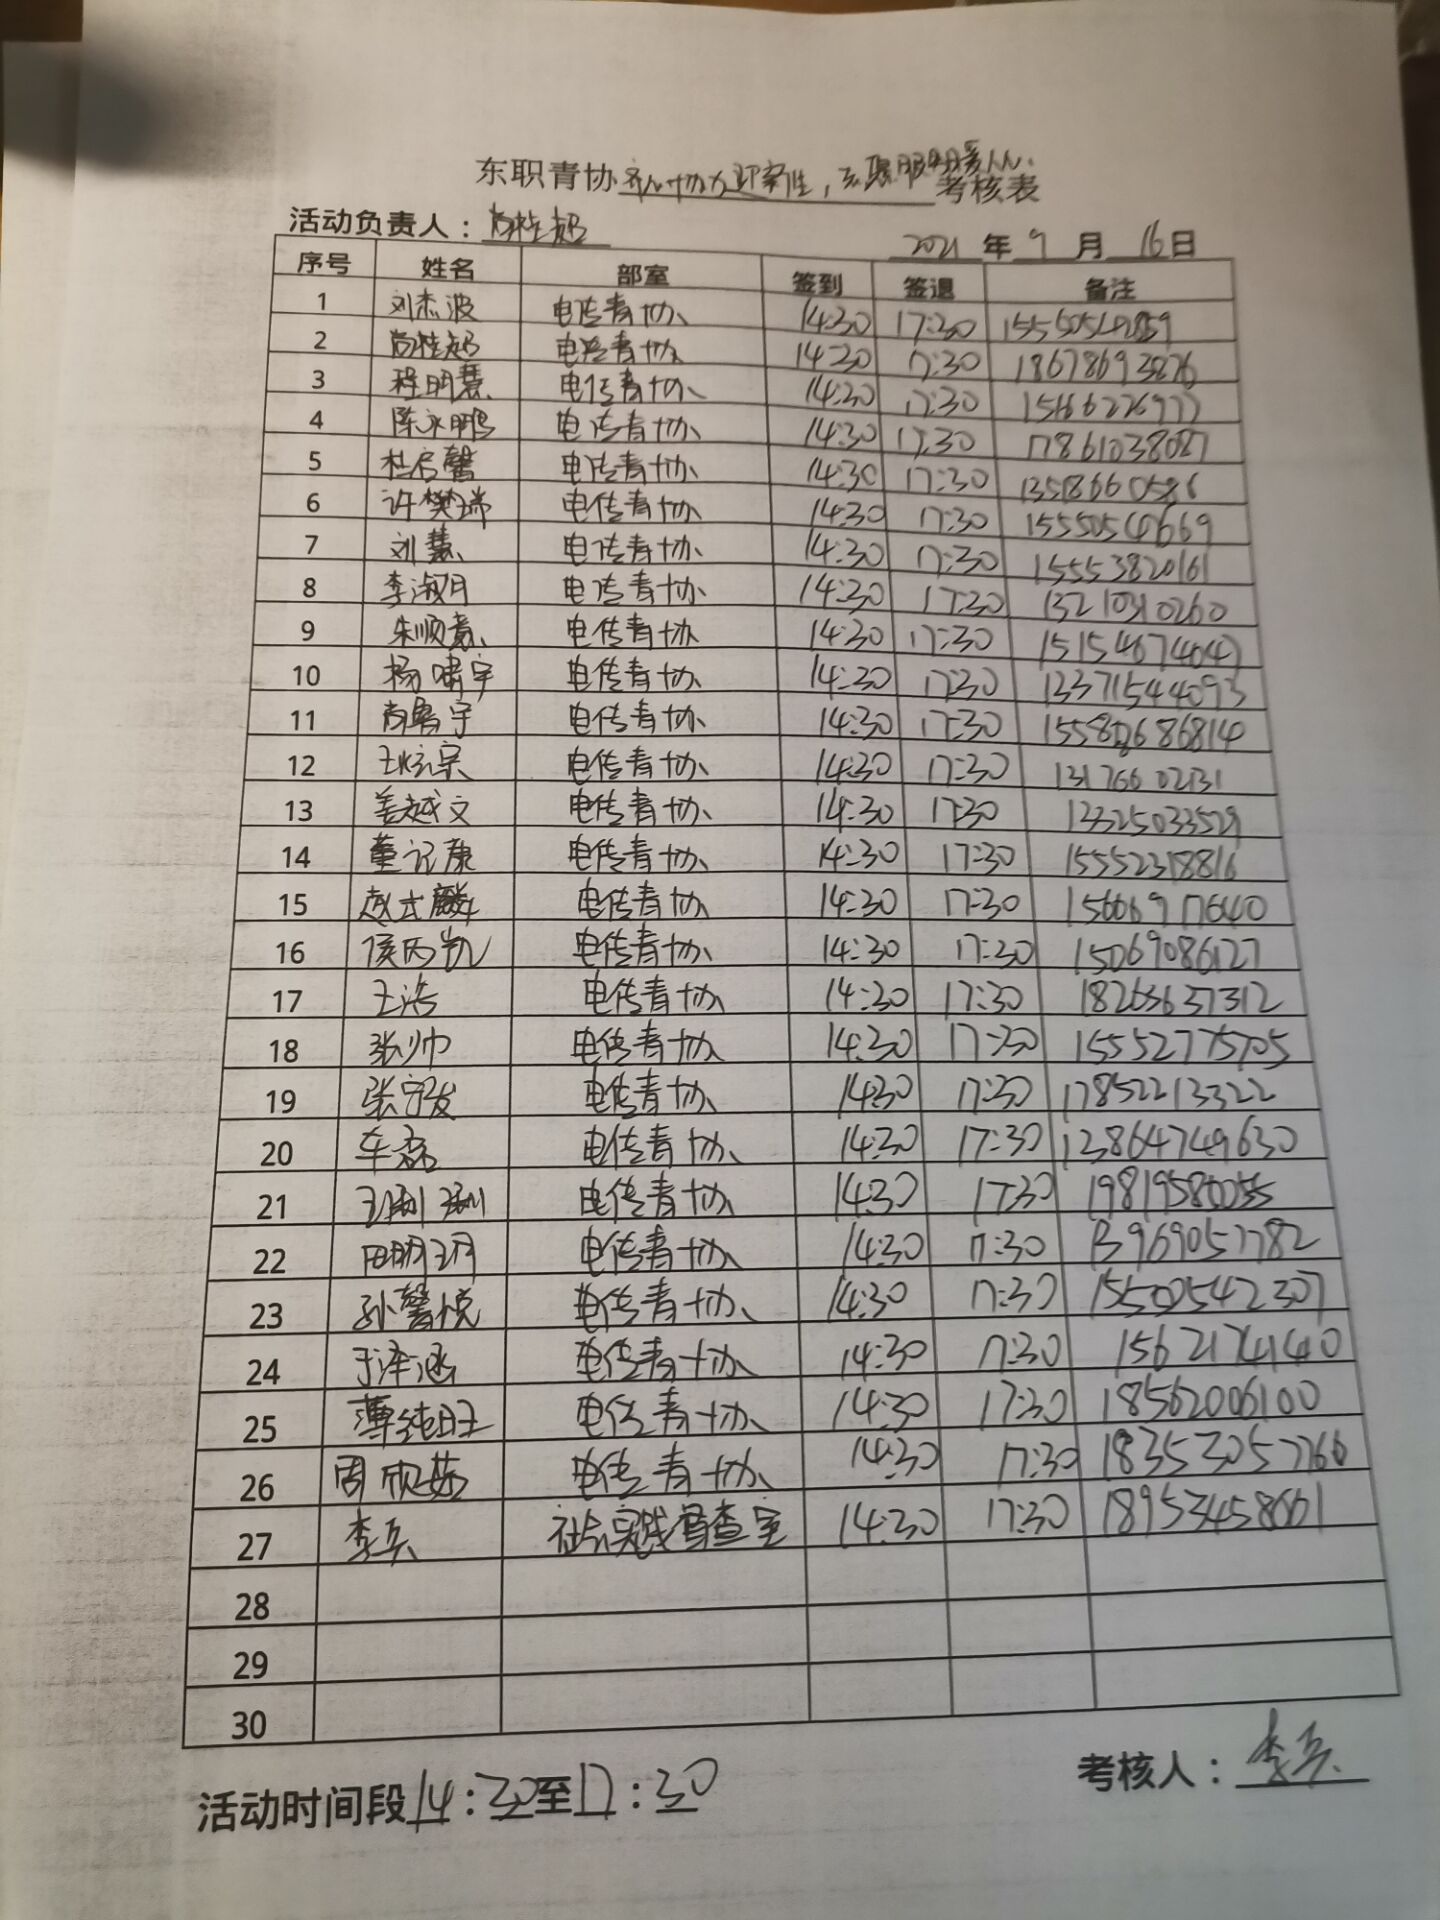 东职青协齐心协力 考核表
活动负责人：尚桂超
2021年9月16日
序号 姓名 部室 签到 签退 备注
1 刘杰波 电传青协 14:30 17:30
2 尚桂超 电传青协 14:30 17:30 18678693876
3 程明慧 电传青协 14:30 17:30 15166226977
4 陈永鹏 电传青协 14:30 17:30 17861038087
5 杜启馨 电传青协 14:30 17:30 13518660586
6 许樊瑞 电传青协 14:30 17:30 15550540669
7 刘慧 电传青协 14:30 17:30 15553820161
8 李淑月 电传青协 14:30 17:30 13210310260
9 朱顺意 电传青协 14:30 17:30 15154674047
10 杨啸宇 电传青协 14:30 17:30 13371544093
11 尚鲁宇 电传青协 14:30 17:30
12 电传青协 14:30 17:30 13176602131
13 姜越文 电传青协 14:30 17:30 13325033529
14 董记康 电传青协 14:30 17:30 15552318816
15 赵式麟 电传青协 14:30 17:30 15606917640
16 侯丙凯 电传青协 14:30 17:30 15069086127
17 王浩 电传青协 14:30 17:30 18263637312
18 张帅 电传青协 14:30 17:30 15552775705
19 张守发 电传青协 14:30 17:30 17852213322
20 车磊 电传青协 14:30 17:30 13864749630
21 电传青协 14:30 17:30 19819580055
22 田明玥 电传青协 14:30 17:30 13969057782
23 孙馨悦 电传青协 14:30 17:30 15500542307
24 于泽涵 电传青协 14:30 17:30 15621741440
25 薄纯旺 电传青协 14:30 17:30 18562006100
26 周欣茹 电传青协 14:30 17:30 18353057766
27 李兵 社会实践督查室 14:30 17:30 18953458661
28
29
30
活动时间段14：30至17：30
考核人：李兵